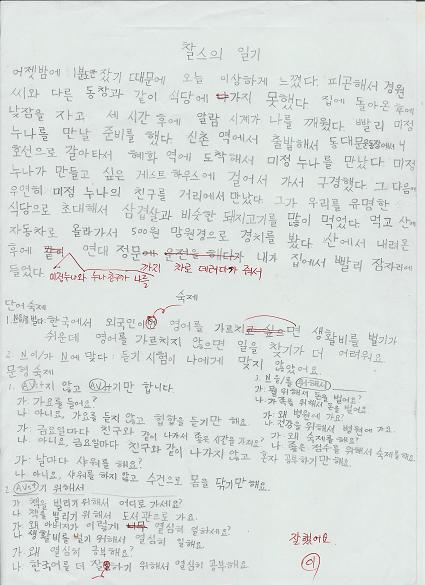 찰스의 일기
어젯밤에 1분도만 잤기 때문에 오늘 이상하게 느꼈다. 피곤해서 경원
씨와 다른 동창과 같이 식당에 가지 못했다. 집에 돌아온 후에
낮잠을 자고 세 시간 후에 알람 시계가 나를 깨웠다. 빨리 미정
누나를 만날 준비를 했다. 신촌 역에서 출발해서 동대문운동장에서 4
호선으로 갈아타서 혜화 역에 도착해서 미정 누나를 만났다. 미정
누나가 만들고 싶은 게스트 하우스에 걸어서 가서 구경했다. 그 다음에
우연히 미정 누나의 친구를 거리에서 만났다. 그가 우리를 유명한
식당으로 초대해서 삼겹살과 비슷한 돼지고기를 많이 먹었다. 먹고 산에
자동차로 올라가서 500원 망원경으로 경치를 봤다. 산에서 내려온
후에 같이 연대 정문에 운전을 해다가 내가 집에서 빨리 잠자리에
들었다. 미정누나와 누나친구가 나를 까지 차로 데려다가 줘서
단어 숙제 숙제
1. 한국에서 외국인이 영어를 가르치고 싶으면 생활비를 벌기가
쉬운데 영어를 가르치지 않으면 일을 찾기가 더 어려워요.
2. N이/가 N에 맞다: 듣기 시험이 나에게 맞지 않았어요.
문형 숙제
1. AV지 않고 AV기만 합니다.
가: 가요를 들어요?
나: 아니요, 가요를 듣지 않고 힙합을 듣기만 해요.
가: 금요일마다 친구와 같이 나가서 좋은 시간을 가져요?
나: 아니요, 금요일마다 친구와 같이 나가지 않고 혼자 공부하기만 해요.
가: 날마다 샤워를 해요?
나: 아니요, 샤워를 하지 않고 수건으로 몸을 닦기만 해요.
2. AV기 위해서
가: 책을 빌리기 위해서 어디로 가세요?
나: 책을 빌리기 위해서 도서관으로 가요.
가: 왜 아버지가 이렇게 너무 열심히 일하세요?
나: 생활비를 벌기 위해서 열심히 일해요.
가: 왜 열심히 공부해요?
나: 한국어를 더 잘하기 위해서 열심히 공부해요.
3. N을/를 위해서
가: 뭘 위해서 돈을 벌어요?
나: 가족을 위해서 돈을 벌어요.
가: 왜 병원에 가요?
나: 건강을 위해서 병원에 가요.
가: 왜 숙제를 해요?
나: 좋은 점수를 위해서 숙제를 해요.
잘했어요.